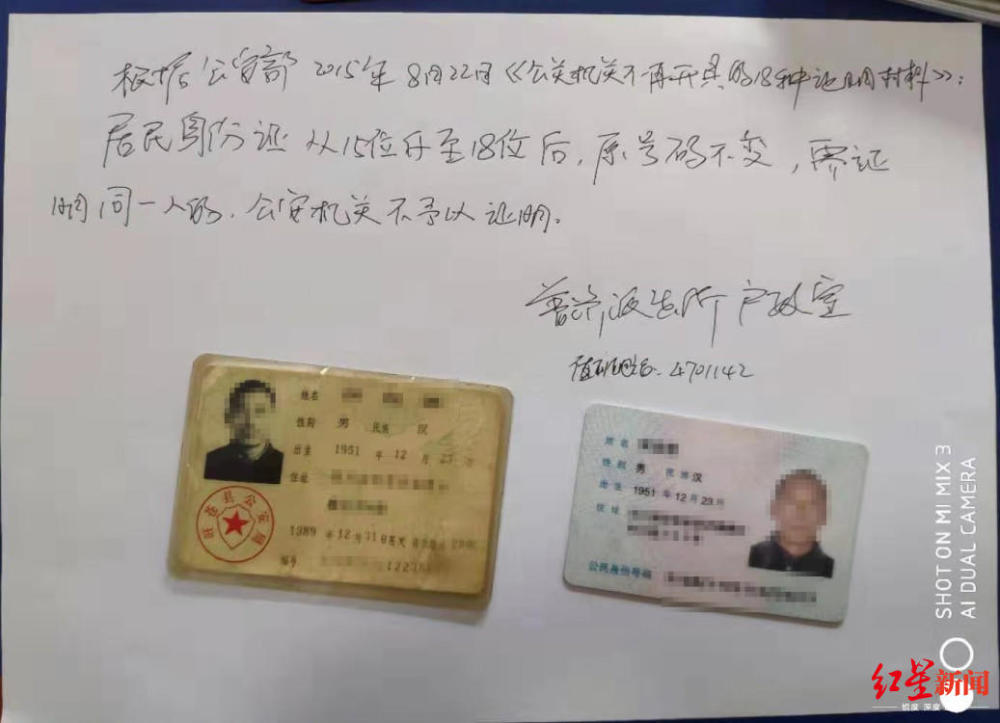 根据公安部 2015年8月22日《公关机关不再开具的18种证明材料》:
居民身份证从15位升至18位后,原号码不变,需证
明同一人的,公安机关不予以证明.
普济派出所户政室
值班电话:4701142
姓名
性别 男 民族 汉
出生 1951 年 12 月 23 日
住址
旺苍县公安局
1989 年 12 月 31 日签发
编号
姓名
性别 男 民族 汉
出生 1951 年 12 月 23 日
住址
公民身份号码
SHOT ON MI MIX 3
AI DUAL CAMERA
红星新闻